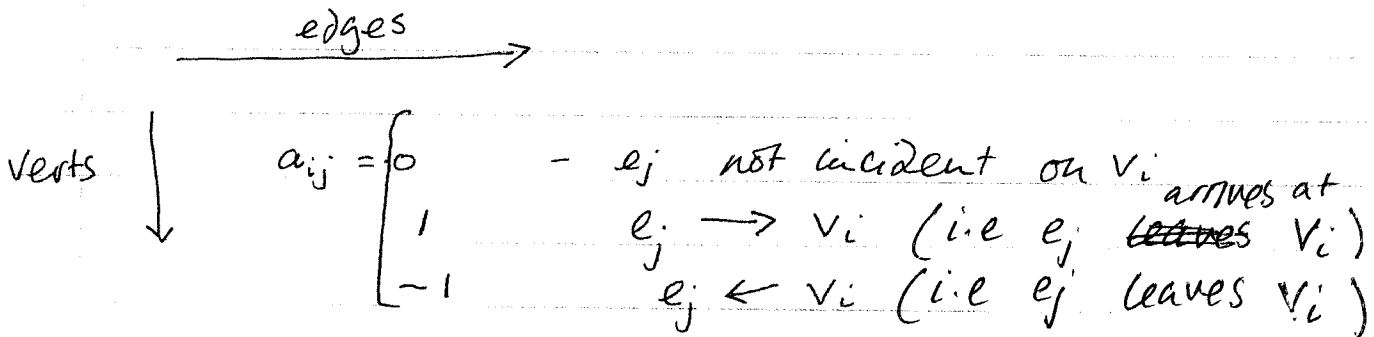 edges
verts a_ij = { 0 - e_j not incident on v_i
1 e_j → v_i (i.e e_j leaves arrives at v_i)
-1 e_j ← v_i (i.e e_j leaves v_i)